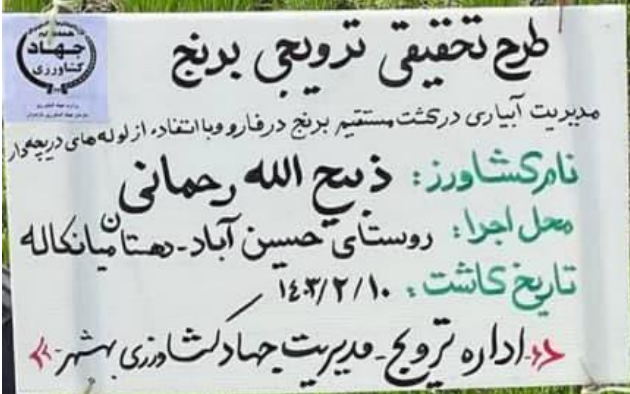 جهاد
کشاورزی
طرح تحقیقی ترویجی برنج
مدیریت آبیاری در کشت مستقیم برنج در فارو و با استفاده از لوله های دریچه دار
نام کشاورز: ذبیح الله رحمانی
محل اجرا: روستای حسین آباد - دهستان میانکاله
تاریخ کاشت: ۱۴۰۳/۲/۱۰
اداره ترویج - مدیریت جهاد کشاورزی بهشهر